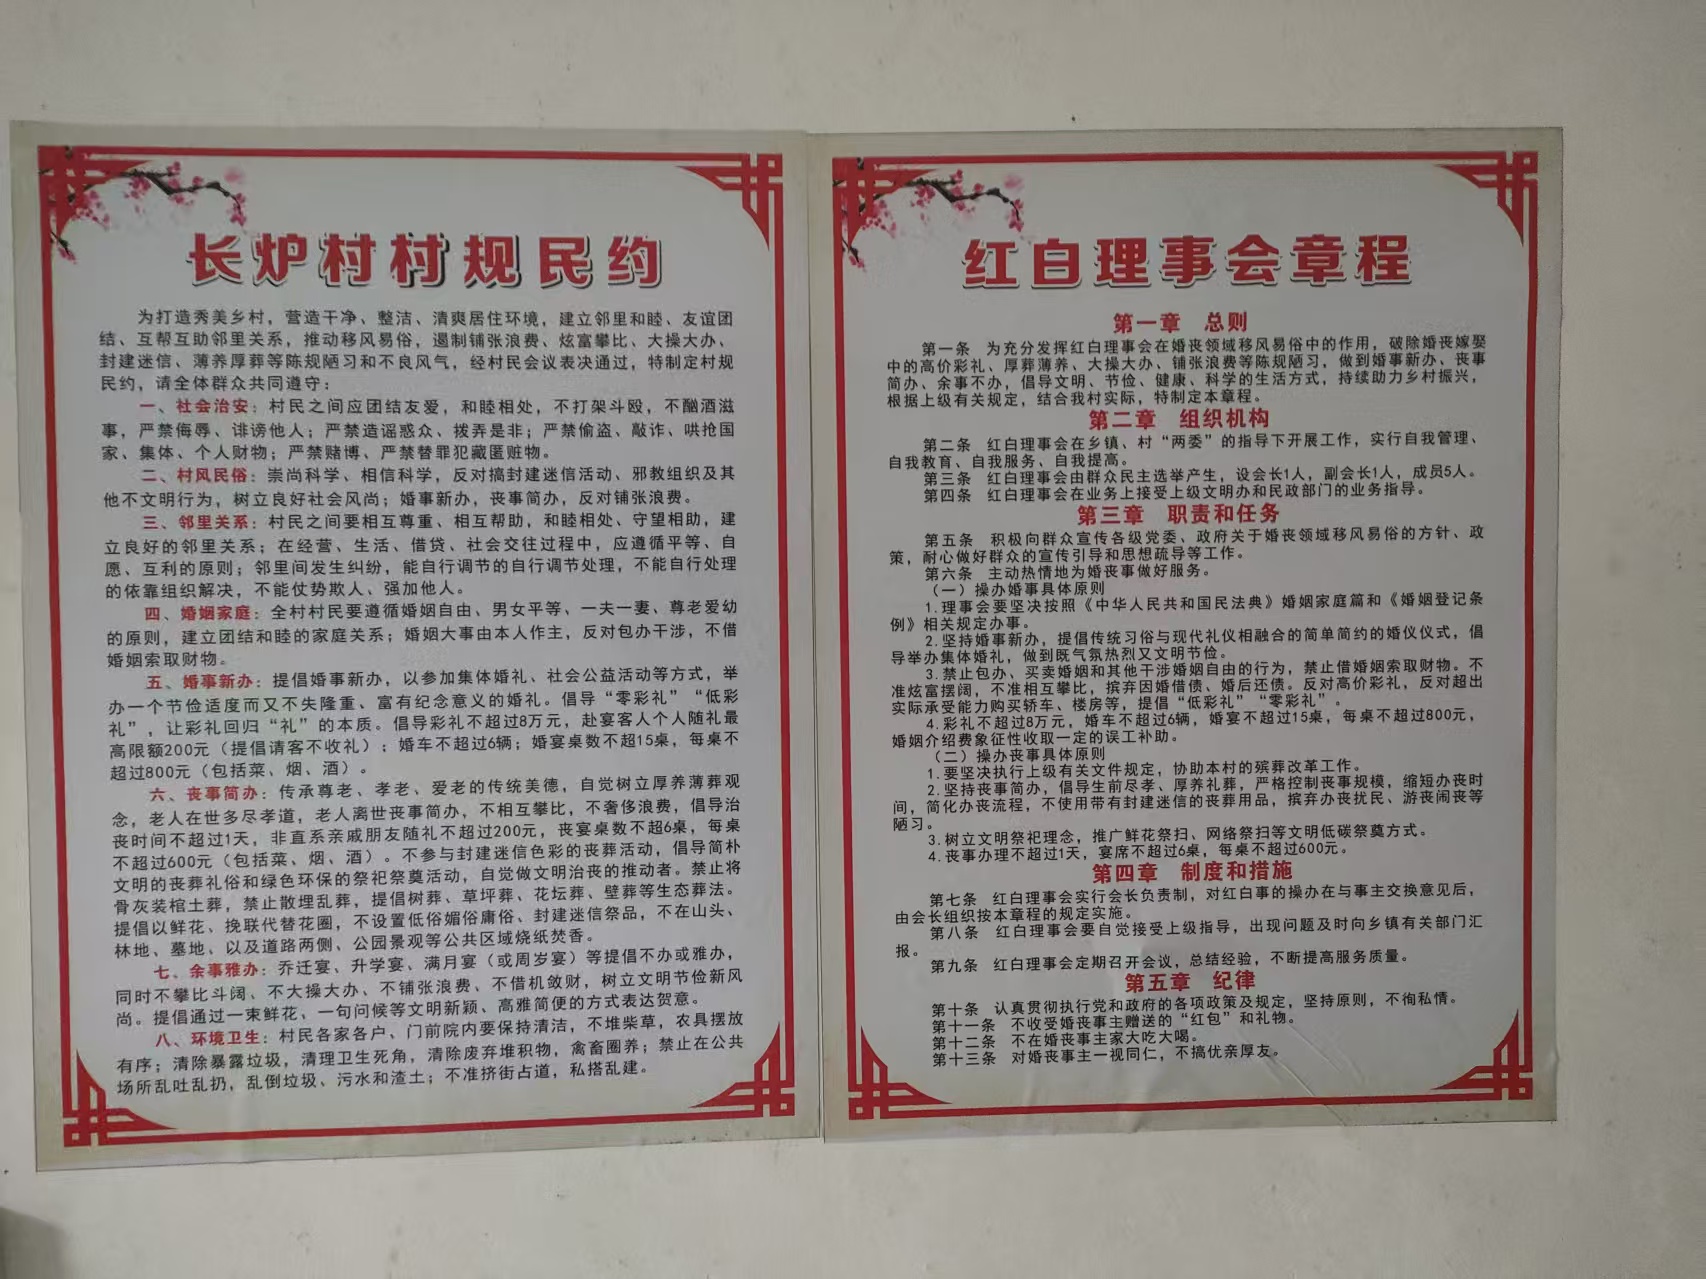 长炉村村规民约
为打造秀美乡村，营造干净、整洁、清爽居住环境，建立邻里和睦、友谊团
结、互帮互助邻里关系，推动移风易俗，遏制铺张浪费、炫富攀比、大操大办、
封建迷信、薄养厚葬等陈规陋习和不良风气，经村民会议表决通过，特制定村规
民约，请全体群众共同遵守：
一、社会治安：村民之间应团结友爱，和睦相处，不打架斗殴，不酗酒滋
事，严禁侮辱、诽谤他人；严禁造谣惑众、拨弄是非；严禁偷盗、敲诈、哄抢国
家、集体、个人财物；严禁赌博、严禁替罪犯藏匿赃物。
二、村风民俗：崇尚科学、相信科学，反对搞封建迷信活动、邪教组织及其
他不文明行为，树立良好社会风尚；婚事新办，丧事简办，反对铺张浪费。
三、邻里关系：村民之间要相互尊重、相互帮助，和睦相处、守望相助，建
立良好的邻里关系；在经营、生活、借贷、社会交往过程中，应遵循平等、自
愿、互利的原则；邻里间发生纠纷，能自行调节的自行调节处理，不能自行处理
的依靠组织解决，不能仗势欺人、强加他人。
四、婚姻家庭：全村村民要遵循婚姻自由、男女平等、一夫一妻、尊老爱幼
的原则，建立团结和睦的家庭关系；婚姻大事由本人作主，反对包办干涉，不借
婚姻索取财物。
五、婚事新办：提倡婚事新办，以参加集体婚礼、社会公益活动等方式，举
办一个节俭适度而又不失隆重、富有纪念意义的婚礼。倡导“零彩礼”“低彩
礼”，让彩礼回归“礼”的本质。倡导彩礼不超过8万元，赴宴客人个人随礼最
高限额200元（提倡请客不收礼）；婚车不超过6辆；婚宴桌数不超15桌，每桌不
超过800元（包括菜、烟、酒）。
六、丧事简办：传承尊老、孝老、爱老的传统美德，自觉树立厚养薄葬观
念，老人在世多尽孝道，老人离世丧事简办，不相互攀比，不奢侈浪费，倡导治
丧时间不超过1天，非直系亲戚朋友随礼不超过200元，丧宴桌数不超6桌，每桌
不超过600元（包括菜、烟、酒）。不参与封建迷信色彩的丧葬活动，倡导简朴
文明的丧葬礼俗和绿色环保的祭祀祭奠活动，自觉做文明治丧的推动者。禁止将
骨灰装棺土葬，禁止散埋乱葬，提倡树葬、草坪葬、花坛葬、壁葬等生态葬法。
提倡以鲜花、挽联代替花圈，不设置低俗媚俗庸俗、封建迷信祭品，不在山头、
林地、墓地、以及道路两侧、公园景观等公共区域烧纸焚香。
七、余事雅办：乔迁宴、升学宴、满月宴（或周岁宴）等提倡不办或雅办，
同时不攀比斗阔、不大操大办、不铺张浪费、不借机敛财，树立文明节俭新风
尚。提倡通过一束鲜花、一句问候等文明新颖、高雅简便的方式表达贺意。
八、环境卫生：村民各家各户、门前院内要保持清洁，不堆柴草，农具摆放
有序；清除暴露垃圾，清理卫生死角，清除废弃堆积物，禽畜圈养；禁止在公共
场所乱吐乱扔，乱倒垃圾、污水和渣土；不准挤街占道，私搭乱建。
红白理事会章程
第一章 总则
第一条 为充分发挥红白理事会在婚丧领域移风易俗中的作用，破除婚丧嫁娶
中的高价彩礼、厚葬薄养、大操大办、铺张浪费等陈规陋习，做到婚事新办、丧事
简办、余事不办，倡导文明、节俭、健康、科学的生活方式，持续助力乡村振兴，
根据上级有关规定，结合我村实际，特制定本章程。
第二章 组织机构
第二条 红白理事会在乡镇、村“两委”的指导下开展工作，实行自我管理、
自我教育、自我服务、自我提高。
第三条 红白理事会由群众民主选举产生，设会长1人，副会长1人，成员5人。
第四条 红白理事会在业务上接受上级文明办和民政部门的业务指导。
第三章 职责和任务
第五条 积极向群众宣传各级党委、政府关于婚丧领域移风易俗的方针、政
策，耐心做好群众的宣传引导和思想疏导等工作。
第六条 主动热情地为婚丧事做好服务。
（一）操办婚事具体原则
1.理事会要坚决按照《中华人民共和国民法典》婚姻家庭篇和《婚姻登记条
例》相关规定办事。
2.坚持婚事新办，提倡传统习俗与现代礼仪相融合的简单简约的婚仪仪式，倡
导举办集体婚礼，做到既气氛热烈又文明节俭。
3.禁止包办、买卖婚姻和其他干涉婚姻自由的行为，禁止借婚姻索取财物。不
准炫富摆阔，不准相互攀比，摈弃因婚借债、婚后还债。反对高价彩礼，反对超出
实际承受能力购买轿车、楼房等，提倡“低彩礼”“零彩礼”。
4.彩礼不超过8万元，婚车不超过6辆，婚宴不超过15桌，每桌不超过800元，
婚姻介绍费象征性收取一定的误工补助。
（二）操办丧事具体原则
1.要坚决执行上级有关文件规定，协助本村的殡葬改革工作。
2.坚持丧事简办，倡导生前尽孝、厚养礼葬，严格控制丧事规模，缩短办丧时
间，简化办丧流程，不使用带有封建迷信的丧葬用品，摈弃办丧扰民、游丧闹丧等
陋习。
3.树立文明祭祀理念，推广鲜花祭扫、网络祭扫等文明低碳祭奠方式。
4.丧事办理不超过1天，宴席不超过6桌，每桌不超过600元。
第四章 制度和措施
第七条 红白理事会实行会长负责制，对红白事的操办在与事主交换意见后，
由会长组织按本章程的规定实施。
第八条 红白理事会要自觉接受上级指导，出现问题及时向乡镇有关部门汇
报。
第九条 红白理事会定期召开会议，总结经验，不断提高服务质量。
第五章 纪律
第十条 认真贯彻执行党和政府的各项政策及规定，坚持原则，不徇私情。
第十一条 不收受婚丧事主赠送的“红包”和礼物。
第十二条 不在婚丧事主家大吃大喝。
第十三条 对婚丧事主一视同仁，不搞优亲厚友。